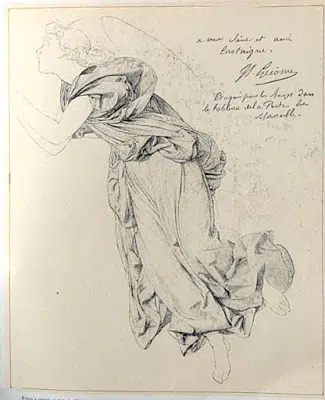 a mon élève et ami
Castaigne.
Gérôme
Croquis pour les Anges dans
le tableau de la Peste de
Marseille.